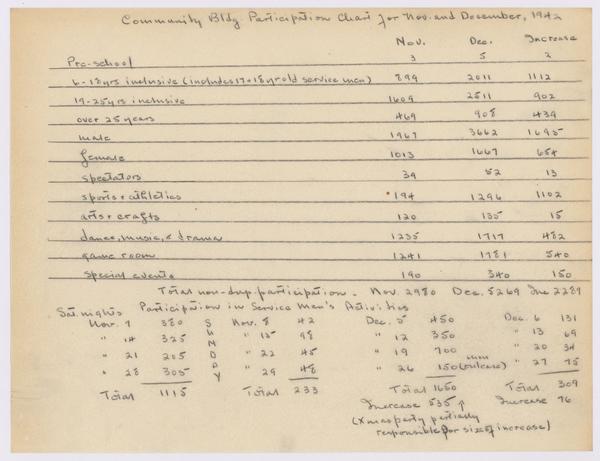 Community Bldg. Participation Chart for Nov. and December, 1942
Nov. Dec. Increase
Pre-school 3 5 2
6-18 yrs inclusive (includes 17+18 yr old service men) 899 2011 1112
19-25 yrs inclusive 1609 2511 902
over 25 years 469 908 439
male 1967 3662 1695
female 1013 1667 654
spectators 39 52 13
sports + athletics 194 1296 1102
arts + crafts 120 135 15
dance, music, & drama 1235 1717 482
game room 1241 1781 540
special events 190 340 150
Total non-dup. participation. Nov. 2980 Dec. 5269 Inc 2289
Participation in Service Men's Activities
Sat. nights SUNDAY
Nov. 7 380 Nov. 8 42 Dec. 5 450 Dec. 6 131
" 14 325 " 15 98 " 12 350 " 13 69
" 21 205 " 22 45 " 19 700 " 20 34
" 28 305 " 29 48 " 26 150 " 27 75
Total 1115 Total 233 Total 1650 Total 309
Increase 535 Increase 76
(Xmas party partially
responsible for size of increase)